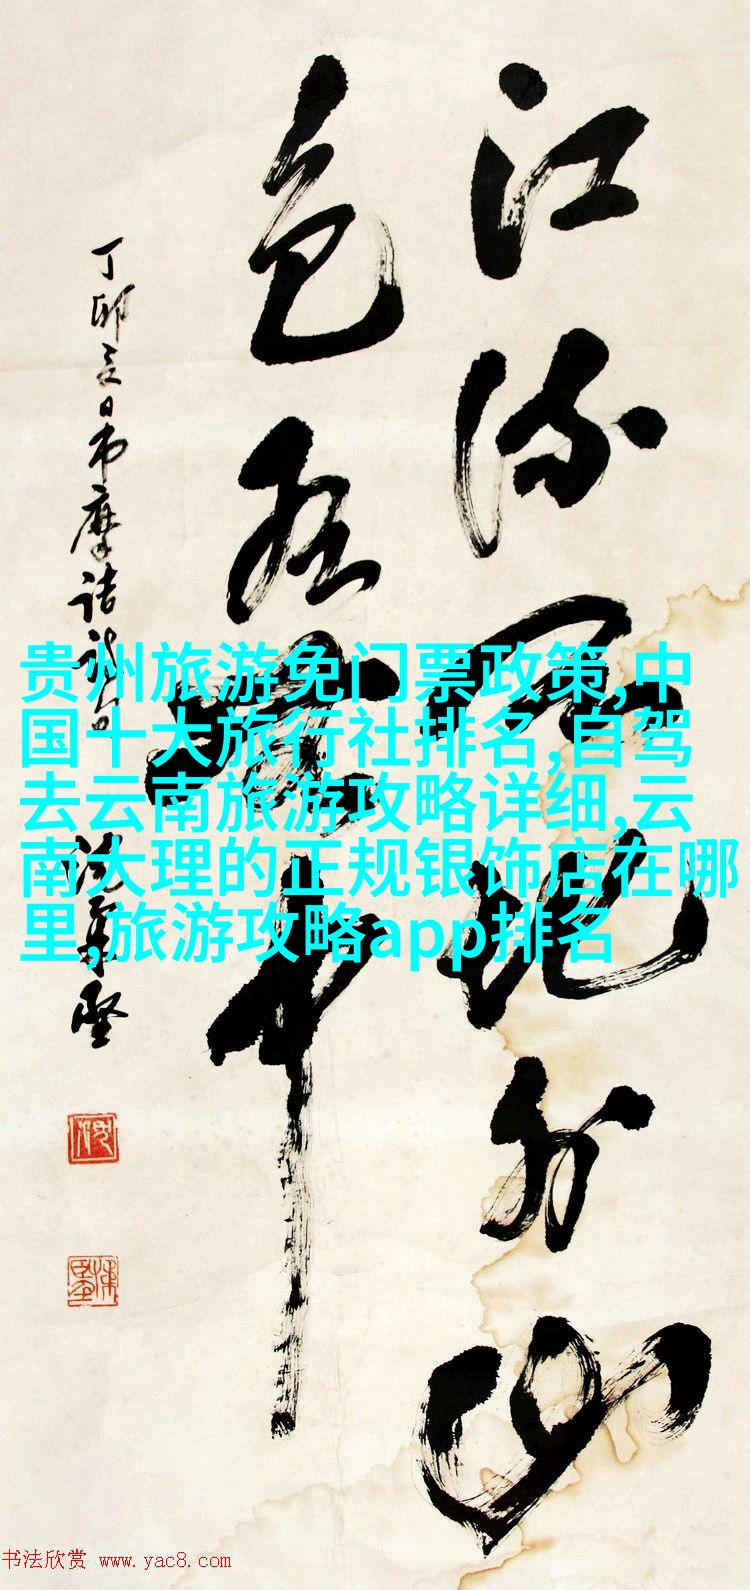 江流天地外山
色有无中
丁卯夏日书摩诘诗句
沈
坚
贵州旅游免门票政策,中
国十大旅行社排名,自驾
去云南旅游攻略详细,云
南大理的正规银饰店在哪
里,旅游攻略app排名
书法欣赏 www.yac8.com